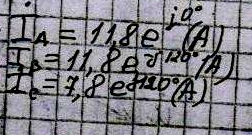 İ_A = 11,8 e^{j0°} (A)
İ_B = 11,8 e^{j120°} (A)
İ_C = 7,8 e^{j120°} (A)